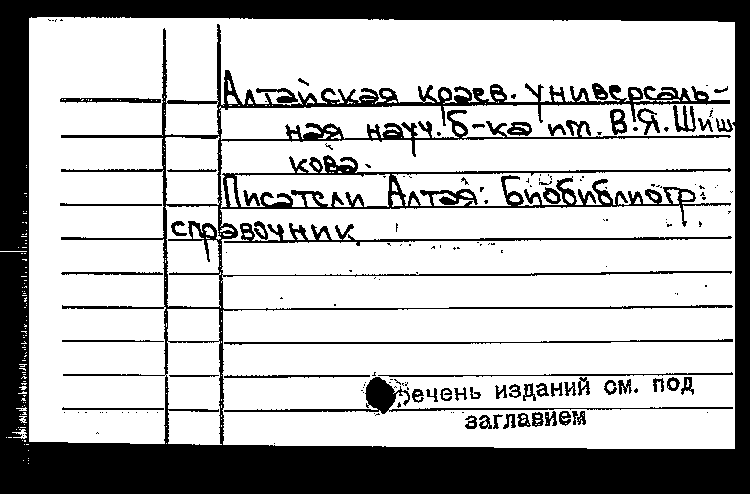 Алтайская краев. универсаль-
ная науч. б-ка им. В.Я. Шиш-
кова.
Писатели Алтая: Биобиблиогр.
справочник.
речень изданий см. под
заглавием